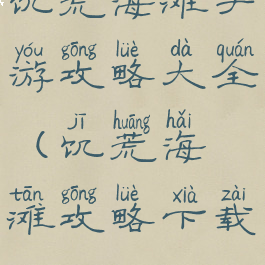 饥荒海滩手
yóu gōng lüè dà quán
游攻略大全
jī huāng hǎi
（饥荒海
tān gōng lüè xià zài
滩攻略下载